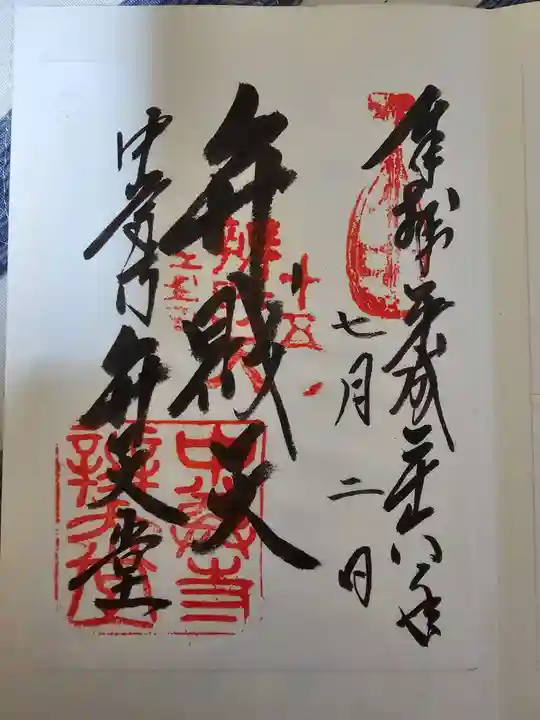 奉拝 平成二十八年
七月二日
弁財天
中尊寺 弁天堂
十五
中尊寺
辨天堂